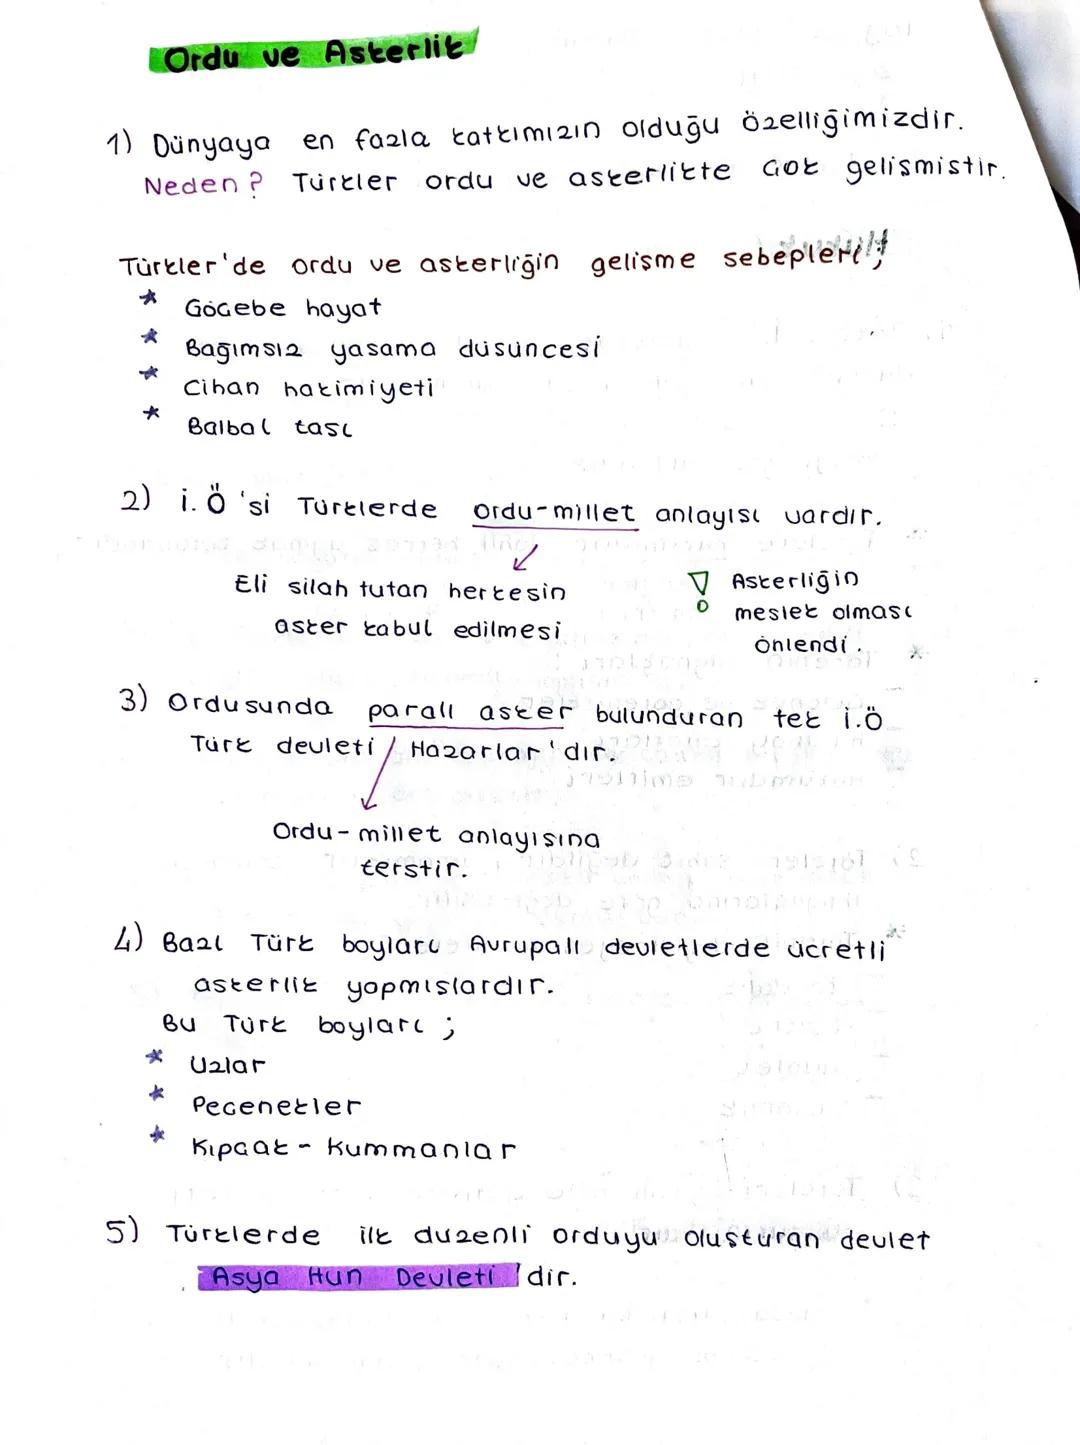 Ordu ve Askerlik
1) Dünyaya en fazla katkımızın olduğu özelliğimizdir.
Neden? Türkler ordu ve askerlikte çok gelişmiştir.
Türkler'de ordu ve askerliğin gelişme sebepleri;
* Göçebe hayat
* Bağımsız yaşama düşüncesi
* Cihan hakimiyeti
* Balbal taşı
2) İ.Ö'si Türklerde ordu-millet anlayışı vardır.
Eli silah tutan herkesin
asker kabul edilmesi
! Askerliğin
meslek olması
önlendi.
3) Ordusunda paralı asker bulunduran tek İ.Ö
Türk devleti Hazarlar'dır.
Ordu-millet anlayışına
terstir.
4) Bazı Türk boyları Avrupalı devletlerde ücretli
askerlik yapmışlardır.
Bu Türk boyları;
* Uzlar
* Peçenekler
* Kıpçak - Kummanlar
5) Türklerde ilk düzenli orduyu oluşturan devlet
Asya Hun Devleti'dir.